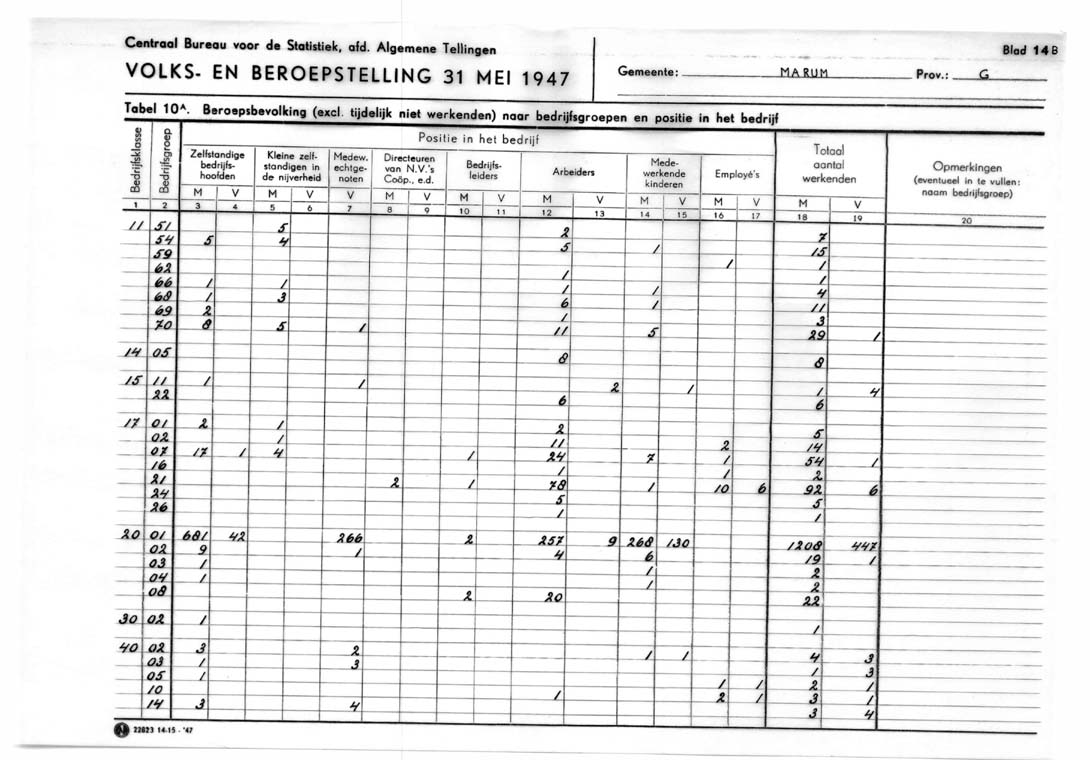 Centraal Bureau voor de Statistiek, afd. Algemene Tellingen
Blad 14B
VOLKS- EN BEROEPSTELLING 31 MEI 1947
Gemeente: MARUM Prov.: G
Tabel 10A. Beroepsbevolking (excl. tijdelijk niet werkenden) naar bedrijfsgroepen en positie in het bedrijf
Bedrijfsklasse
Bedrijfsgroep
Positie in het bedrijf
Zelfstandige bedrijfs-hoofden
Kleine zelf-standigen in de nijverheid
Medew. echtge-noten
Directeuren van N.V.'s Coöp., e.d.
Bedrijfs-leiders
Arbeiders
Mede-werkende kinderen
Employé's
Totaal aantal werkenden
Opmerkingen (eventueel in te vullen: naam bedrijfsgroep)
M V M V V M V M V M V M V M V M V
1 2 3 4 5 6 7 8 9 10 11 12 13 14 15 16 17 18 19 20
11 51 5 2 7
54 5 4 5 1 15
59 1 1
62 1 1
66 1 1 1 1 4
68 1 3 6 1 11
69 2 1 3
70 8 5 1 11 5 29 1
14 05 8 8
15 11 1 1 2 1 1 4
22 6 6
17 01 2 1 2 5
02 1 11 2 14
07 17 1 4 1 24 7 1 54 1
16 1 1 2
21 2 1 78 1 10 6 92 6
24 5 5
26 1 1
20 01 681 42 266 2 257 9 268 130 1208 447
02 9 1 4 6 19 1
03 1 1 2
04 1 1 2
08 2 20 22
30 02 1 1
40 02 3 2 1 1 4 3
03 1 3 1 3
05 1 1 1 2 1
10 1 2 1 3 1
14 3 4 3 4
22823 14-15 - '47